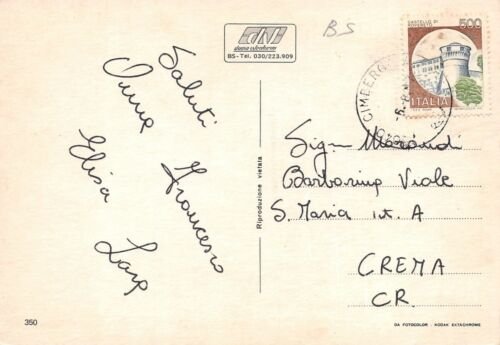 diana edicolarum
BS- Tel. 030/223.909
BS
CASTELLO DI
ROVERETO
500
ITALIA
CIMBERGO
Saluti
Anna
Francesco
Elisa
Lara
Riproduzione vietata
Sig.
Barbarina Viale
S. Maria int. A
CREMA
CR.
350
DA FOTOCOLOR - KODAK EKTACHROME